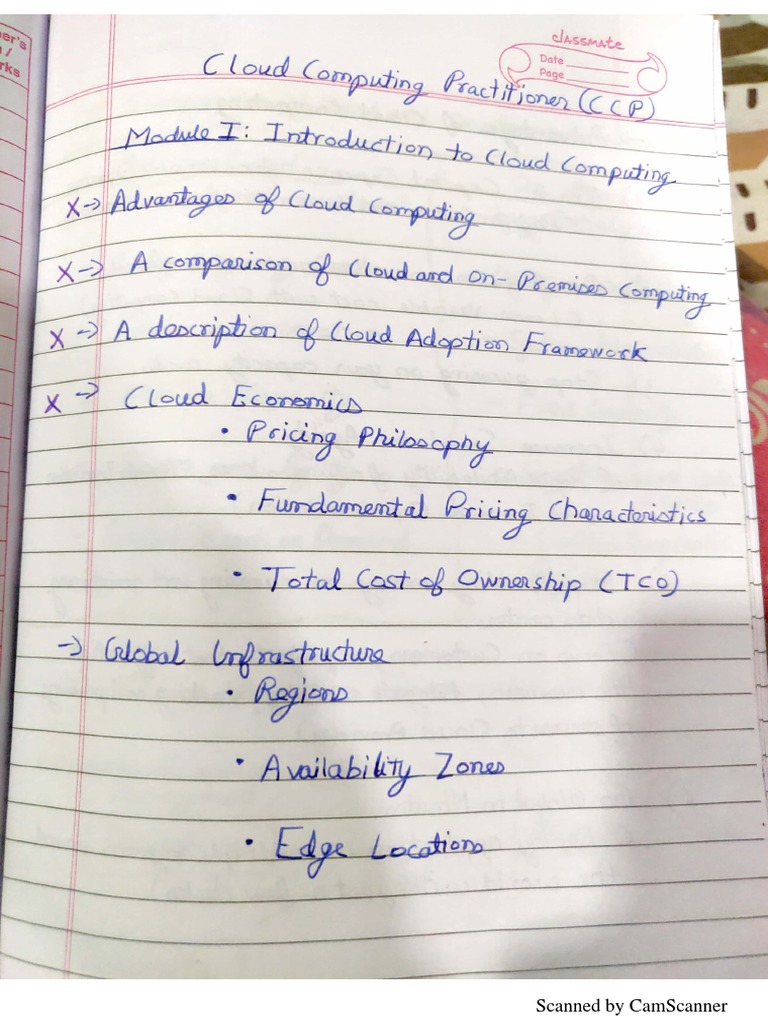 er's
/
rks
classmate
Date
Page
Cloud Computing Practitioner (CCP)
Module I: Introduction to Cloud Computing
X → Advantages of Cloud Computing
X → A comparison of Cloud and on-Premises Computing
X → A description of Cloud Adoption Framework
X → Cloud Economics
• Pricing Philosophy
• Fundamental Pricing Characteristics
• Total Cost of Ownership (TCO)
→ Global Infrastructure
• Regions
• Availability Zones
• Edge Locations
Scanned by CamScanner